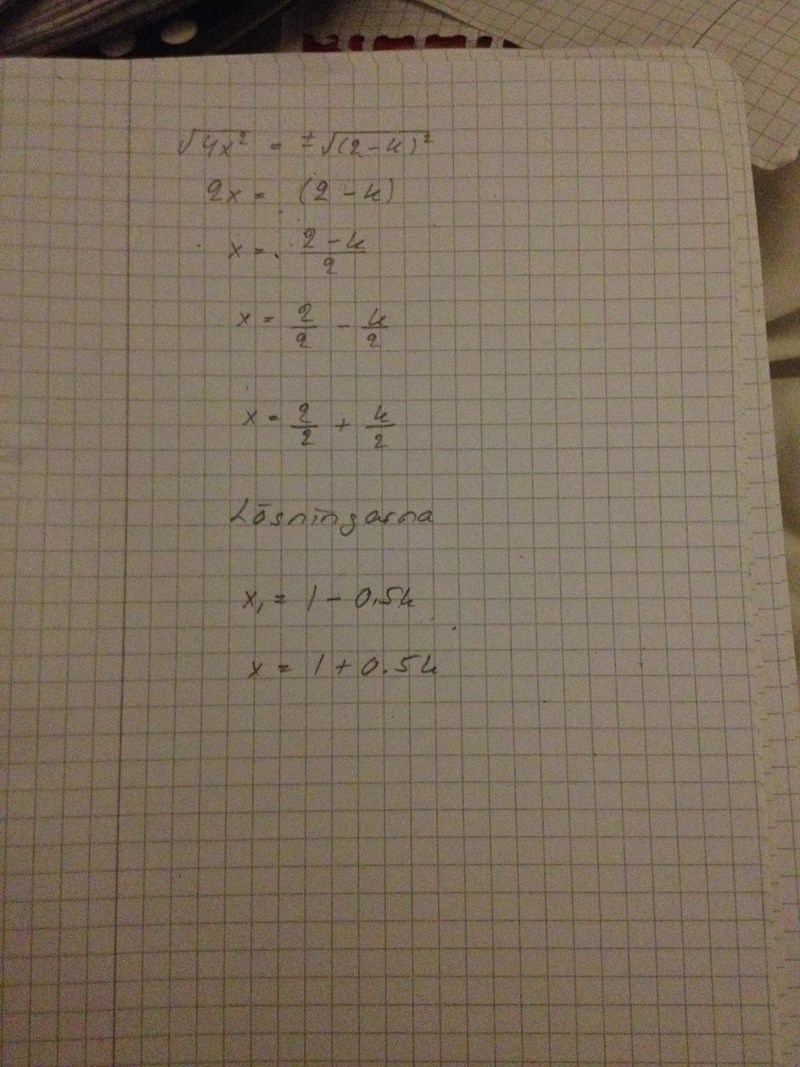 √4x² = ±√(2-k)²
2x = (2-k)
x = 2-k/2
x = 2/2 - k/2
x = 2/2 + k/2
Lösningarna
x₁ = 1 - 0.5k
x = 1 + 0.5k